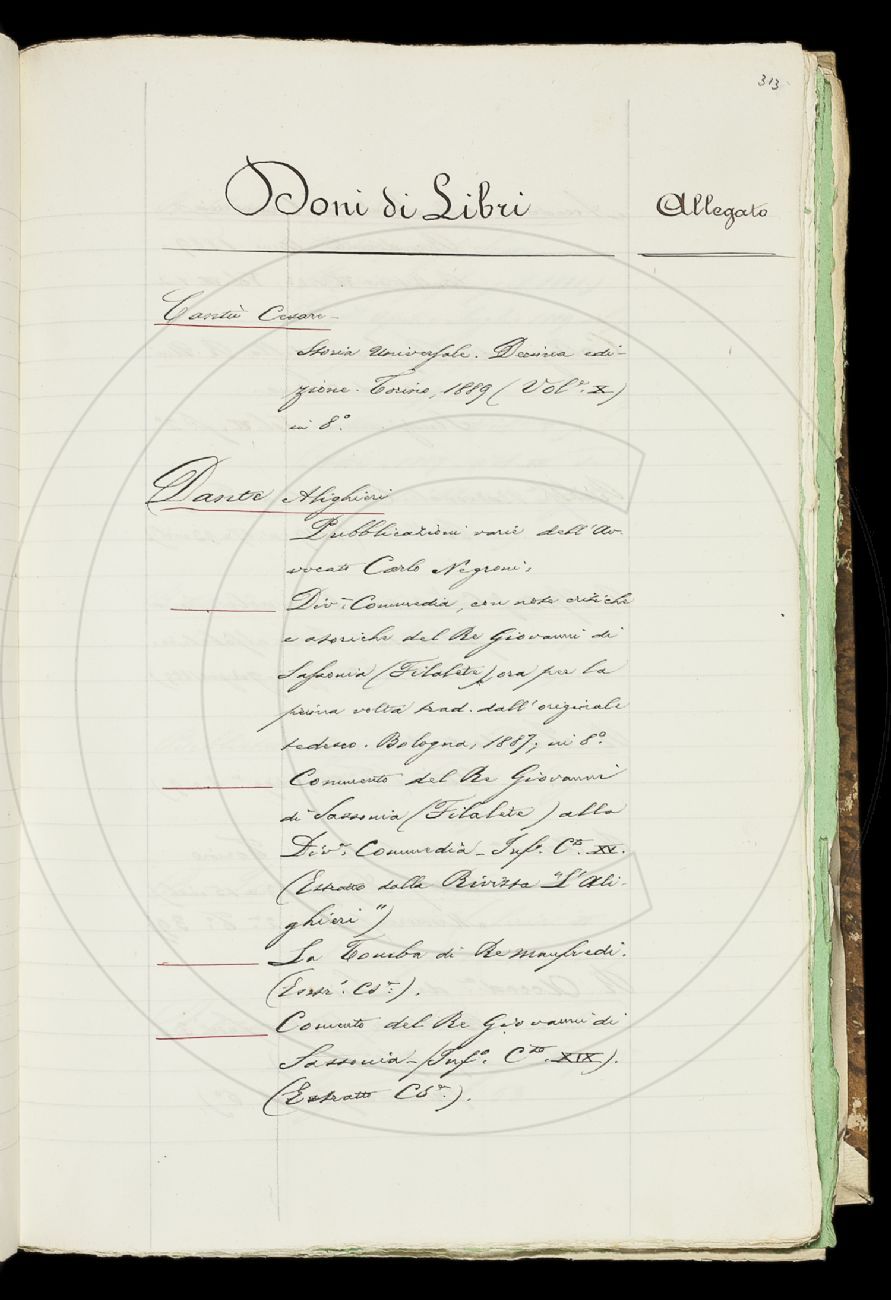 313
Doni di Libri
Allegato
Cantù Cesare -
Storia Universale. Decima edi-
zione. Torino, 1889 (Vol.ͥ X)
in 8°.
Dante Alighieri
Pubblicazioni varie dell'Av-
vocato Carlo Negroni;
Div.ª Commedia, con note critiche
e storiche del Re Giovanni di
Sassonia (Filalete) ora per la
prima volta trad. dall'originale
tedesco. Bologna, 1887; in 8°.
Commento del Re Giovanni
di Sassonia (Filalete) alla
Div.ª Commedia - Inf.º C.to XV.
(Estratto dalla Rivista "L'Ali-
ghieri")
La Tomba di Re Manfredi.
(Estr.
Comento del Re Giovanni di
Sassonia - (Inf.º C.to XIX).
(Estratto